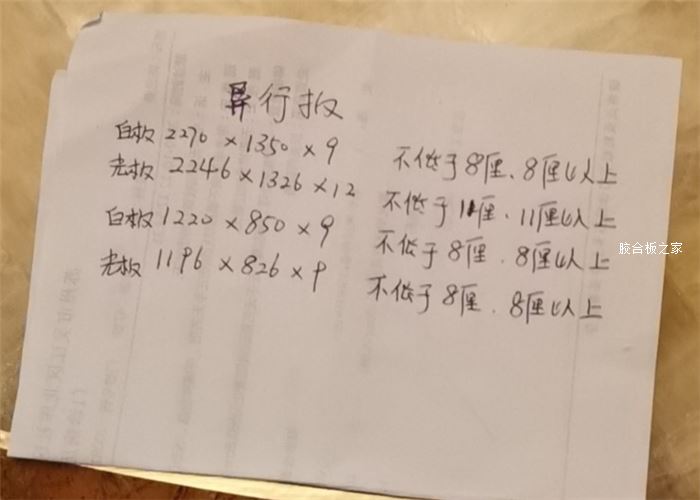 异行板
白板 2270 × 1350 × 9 不低于8厘、8厘以上
光板 2246 × 1326 × 12 不低于11厘、11厘以上
白板 1220 × 850 × 9 不低于8厘、8厘以上
光板 1196 × 826 × 9 不低于8厘、8厘以上
胶合板之家